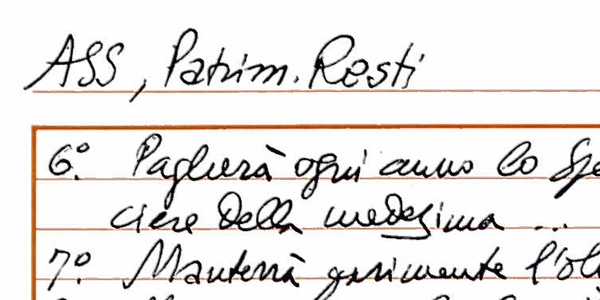 ASS, Patrim. Resti
6° Pagherà ogni anno lo Spe
ciere della medesima ...
7° Manterrà parimente l'ol